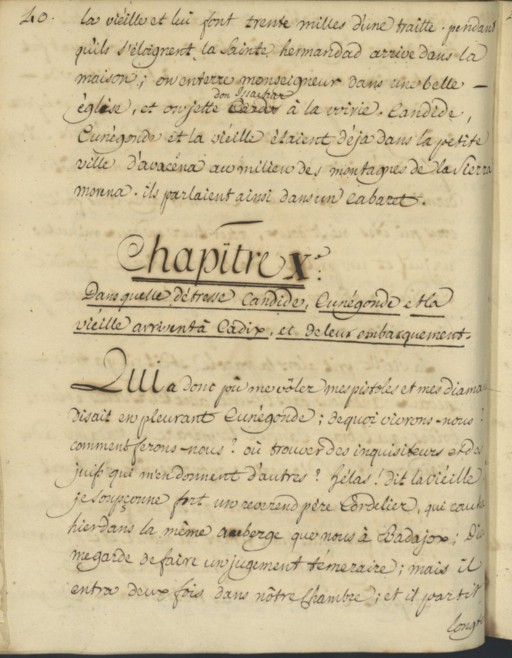 40.
la vieille et lui font trente milles d'une traitte. pendant
qu'ils s'éloignent la Sainte hermandad arrive dans la
maison; on enterre monseigneur dans une belle
don Issachar
église, et on jette à la voirie. Candide,
Cunégonde et la vieille étaient déja dans la petite
ville d'avacéna au milieu des montagnes de la Sierra
morena. ils parlaient ainsi dans un Cabaret.
Chapitre Xe.
Dans quelle détresse Candide, Cunégonde et la
vieille arrivent à Cadix, et de leur embarquement.
Qui a donc pû me vôler mes pistoles et mes diama
disait en pleurant Cunégonde; de quoi vivrons-nous?
comment ferons-nous? où trouver des inquisiteurs et des
juifs qui m'en donnent d'autres? hélas! dit la vieille
je soupçonne fort un reverend père Cordelier, qui coucha
hier dans la même auberge que nous à Badajox; Dieu
me garde de faire un jugement témeraire; mais il
entra deux fois dans nôtre Chambre; et il partit
longt